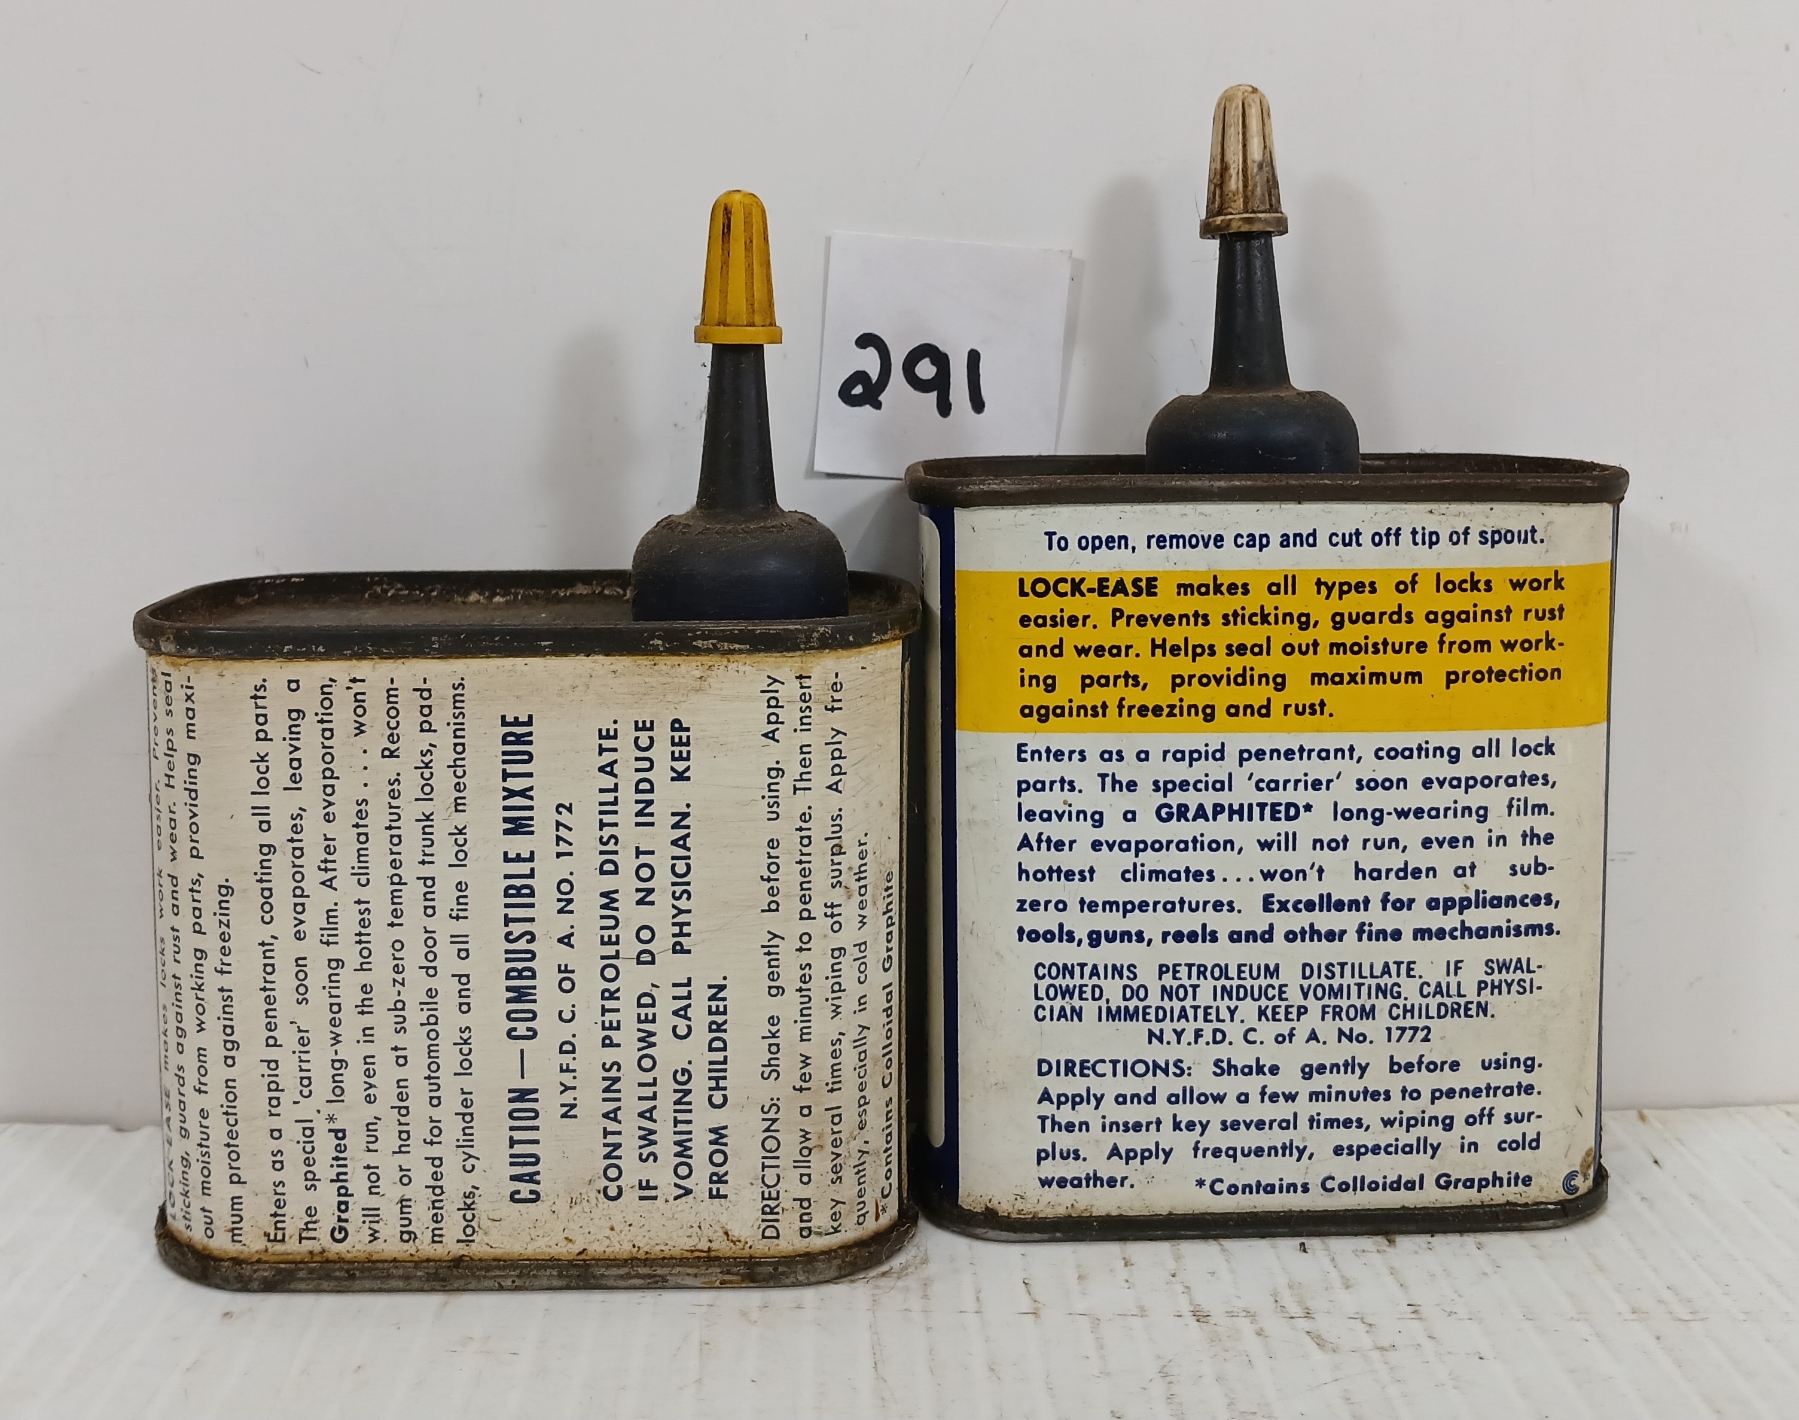 291
LOCK-EASE makes locks work easier. Prevents
sticking, guards against rust and wear. Helps seal
out moisture from working parts, providing maxi-
mum protection against freezing.
Enters as a rapid penetrant, coating all lock parts.
The special 'carrier' soon evaporates, leaving a
Graphited* long-wearing film. After evaporation,
will not run, even in the hottest climates . . . won't
gum or harden at sub-zero temperatures. Recom-
mended for automobile door and trunk locks, pad-
locks, cylinder locks and all fine lock mechanisms.
CAUTION—COMBUSTIBLE MIXTURE
N.Y.F.D. C. OF A. NO. 1772
CONTAINS PETROLEUM DISTILLATE.
IF SWALLOWED, DO NOT INDUCE
VOMITING. CALL PHYSICIAN. KEEP
FROM CHILDREN.
DIRECTIONS: Shake gently before using. Apply
and allow a few minutes to penetrate. Then insert
key several times, wiping off surplus. Apply fre-
quently, especially in cold weather.
*Contains Colloidal Graphite
To open, remove cap and cut off tip of spout.
LOCK-EASE makes all types of locks work
easier. Prevents sticking, guards against rust
and wear. Helps seal out moisture from work-
ing parts, providing maximum protection
against freezing and rust.
Enters as a rapid penetrant, coating all lock
parts. The special 'carrier' soon evaporates,
leaving a GRAPHITED* long-wearing film.
After evaporation, will not run, even in the
hottest climates...won't harden at sub-
zero temperatures. Excellent for appliances,
tools, guns, reels and other fine mechanisms.
CONTAINS PETROLEUM DISTILLATE. IF SWAL-
LOWED, DO NOT INDUCE VOMITING. CALL PHYSI-
CIAN IMMEDIATELY. KEEP FROM CHILDREN.
N.Y.F.D. C. of A. No. 1772
DIRECTIONS: Shake gently before using.
Apply and allow a few minutes to penetrate.
Then insert key several times, wiping off sur-
plus. Apply frequently, especially in cold
weather. *Contains Colloidal Graphite